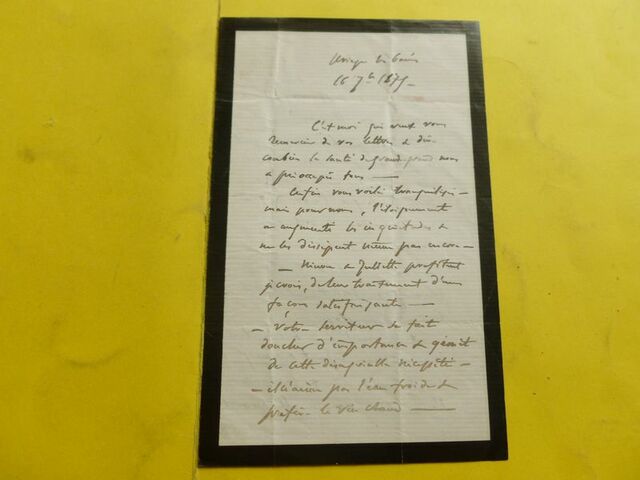 Uriage les bains
16 7bre 1875
C'est moi qui veux vous
remercier de vos lettres & dire
combien la santé de grand père nous
a préoccupés tous —
Enfin vous voilà tranquilles —
mais pour nous, l'éloignement
a augmenté les inquiétudes &
ne les dissipent même pas encore —
— Ninon & Juliette profitent
je crois, de leur traitement d'une
façon satisfaisante —
— Votre serviteur se fait
doucher d'importance & gémit
de cette désagréable nécessité —
— par l'eau froide &
préfère le vin chaud —